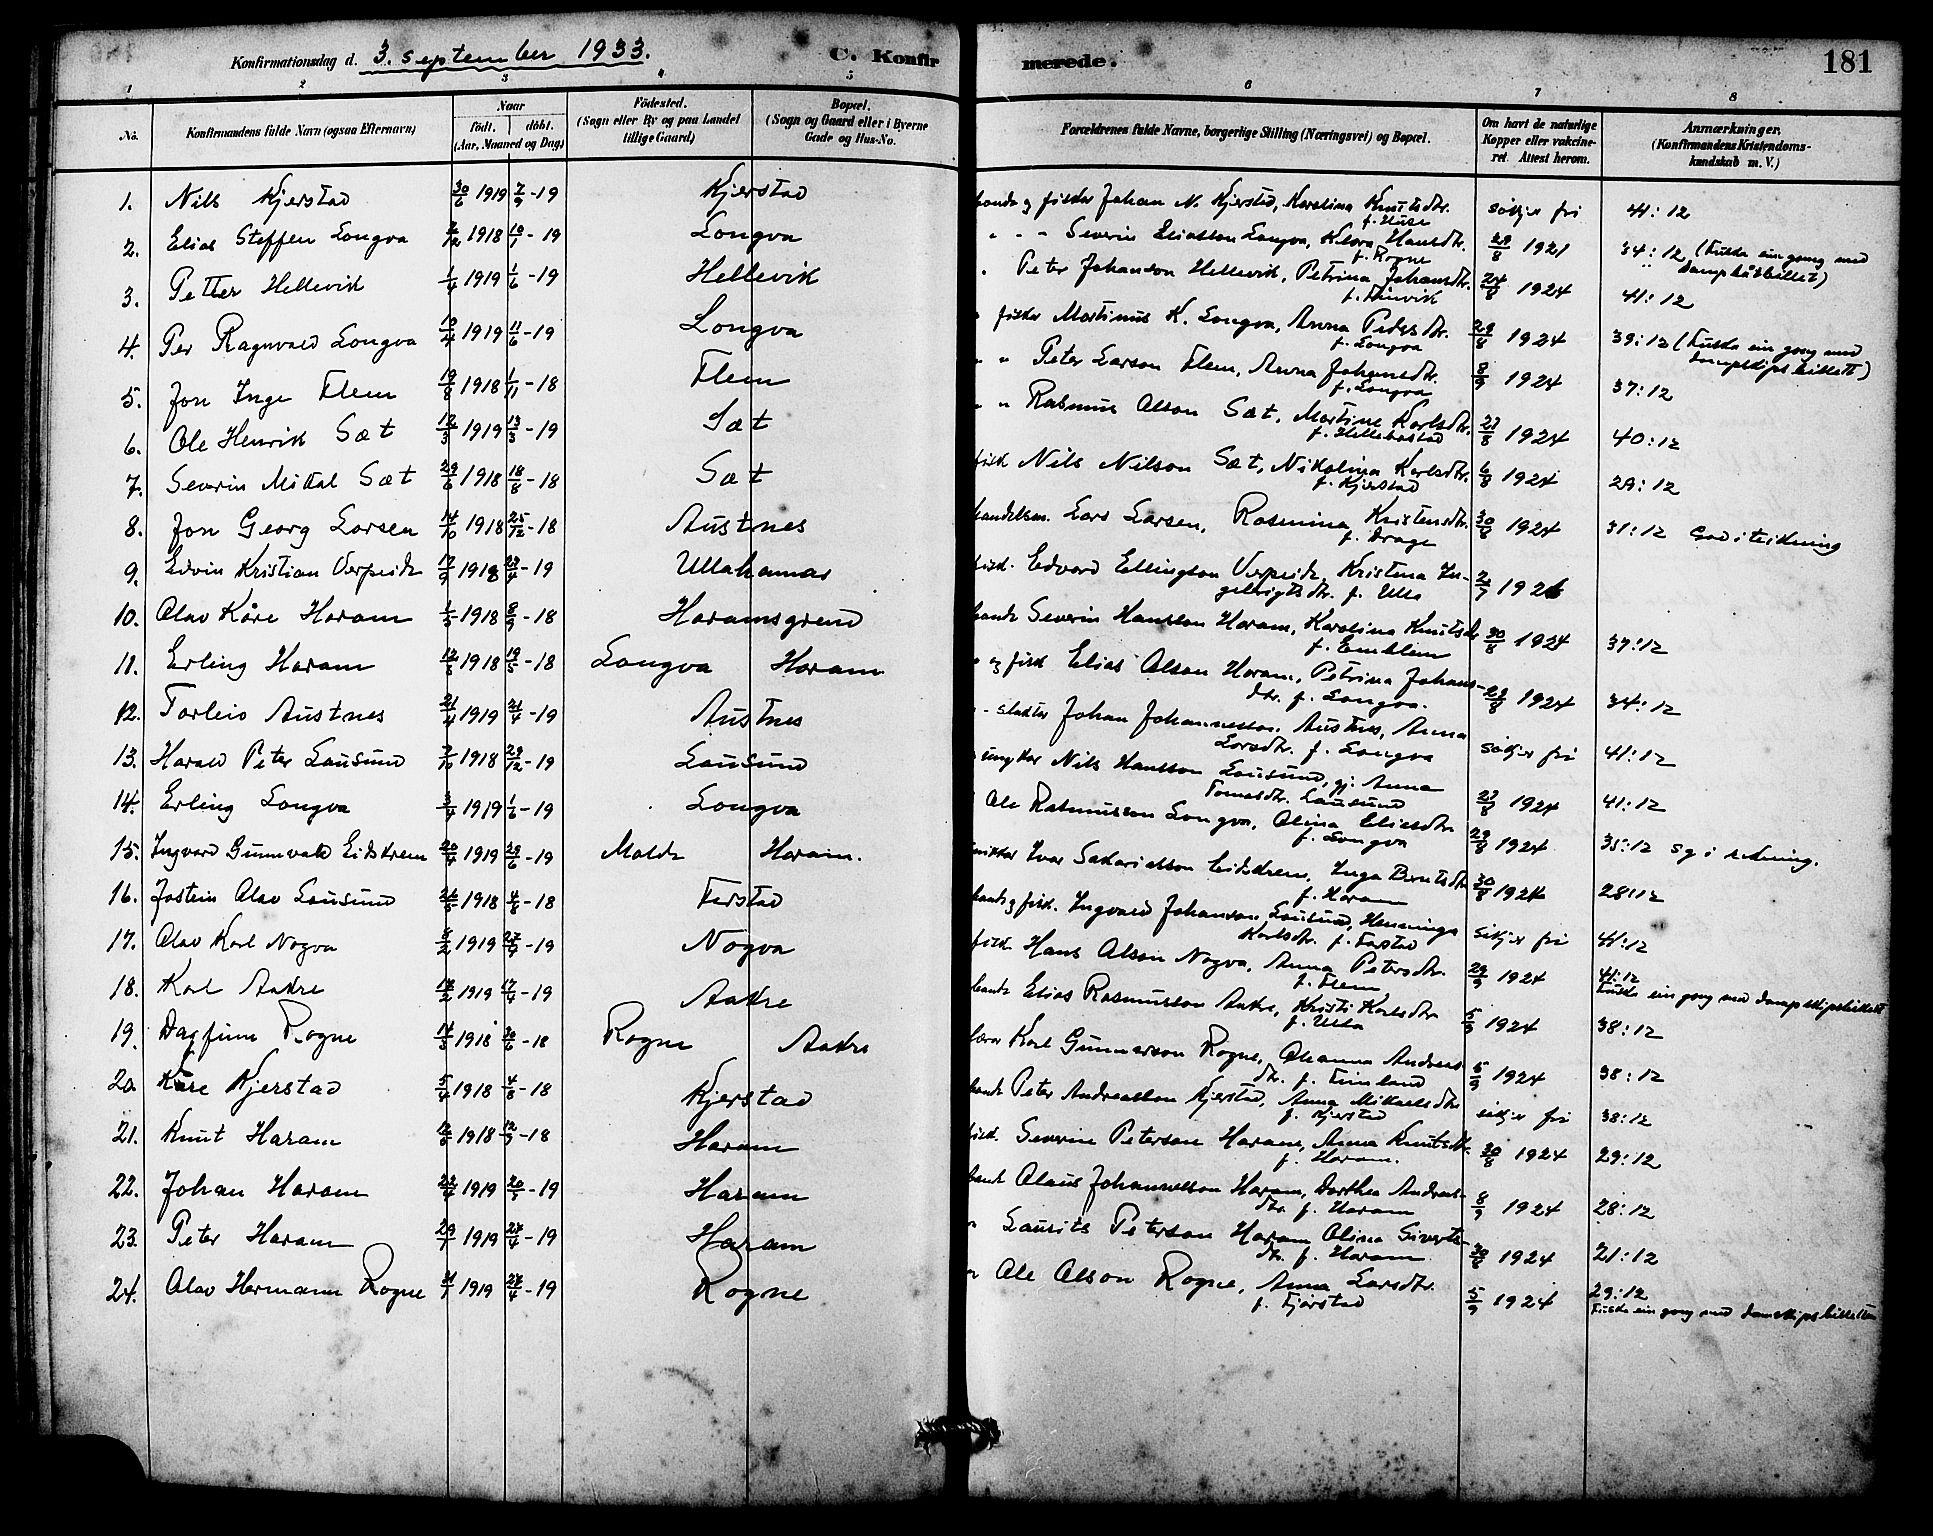 Konfirmationsdag d. 3. september 1933. C. Konfirmerede. 181
1 2 3 4 5 6 7 8
No. Konfirmandens fulde Navn (ogsaa Efternavn) Naar født. døbt. (Aar, Maaned og Dag) Födested. (Sogn eller By og paa Landet tillige Gaard) Bopæl. (Sogn og Gaard eller i Byerne Gade og Hus-No. Forældrenes fulde Navne, borgerlige Stilling (Næringsvei) og Bopæl. Om havt de naturlige Kopper eller vaccineret. Attest herom. Anmærkninger. (Konfirmandens Kristendomskundskab m. V.)
1. Nils Kjerstad 30/6 1919 7/9-19 Kjerstad og fisker Johan N. Kjerstad, Karolina Knutsdtr. f. Huse søkjer fri 41:12
2. Elias Steffen Longva 2/12 1918 10/1-19 Longva Severin Eliasson Longva, Klara Hansdtr. f. Rogne 29/8 1921 34:12 (Fuska ein gong med dampbåtbillet)
3. Petter Hellevik 1/4 1919 1/6-19 Hellevik Peter Johanson Hellevik, Petrina Johansdtr. 24/8 1924 41:12
4. Per Ragnvald Longva 10/4 1919 11/6-19 Longva fisker Martinus K. Longva, Anna Pedersdtr. f. Longva 29/8 1924 39:12 (Fuska ein gong med dampskips billett)
5. Jon Inge Flem 19/8 1918 1/11-18 Flem Peter Larson Flem, Anna Johansdtr. f. Longva 8/9 1924 37:12
6. Ole Henrik Sæt 12/3 1919 13/3-19 Sæt Rasmus Olson Sæt, Martine Karlsdtr. f. Hellebostad 27/8 1924 40:12
7. Severin Mikal Sæt 29/6 1918 18/8-18 Sæt fisk Nils Nilson Sæt, Nikolina Karlsdtr. f. Kjerstad 6/8 1924 29:12
8. Jon Georg Larsen 14/10 1918 25/12-18 Austnes handelsm. Lars Larsen, Rasmina Kristensdtr. f. Drage 30/8 1924 31:12 God i teikning
9. Edvin Kristian Verpeide 1918 -19 Ullahamnas fisk. Edvard Ellingson Verpeide, Kristina Ingebrigtsdtr. f. Ulla 1926
10. Olav Kåre Haram 1918 8/9-18 Haramsgrend Severin Hansson Haram, Karolina Knutsdtr f. Emblem 30/8 1924 37:12
11. Erling Haram 1918 19/5-18 Longva Haram og fisk Elias Olson Haram, Petrina Johansdtr. f. Longva. 29/8 1924 34:12
12. Torleiv Austnes 21/4 1919 21/4-19 Austnes Johan Johannesson Austnes, Anna Larsdtr. f. Longva søkjer fri 41:12
13. Harald Peter Lausund 7/10 1918 29/12-19 Lausund ungkar Nils Hansson Lausund, gj. Anna Tomasdtr. Lausund 27/8 1924 41:12
14. Erling Longva 3/4 1919 1/6-19 Longva Ole Rasmusson Longva, Olina Eliasdtr f. Longva 29/8 1924 35:12 Sg i rekning.
15. Ingvard Gunnvald Eidskrem 20/4 1919 29/6-19 Molde Haram. Ivar Sakariasson Eidskrem, Inga Berntsdtr f. Haram 30/8 1924 28:12
16. Jostein Olav Lausund 26/5 1918 4/8-18 Farstad og fisk. Ingvald Johanson Lausund, Henninga Karlsdtr. f. Farstad søkjer fri 41:12
17. Olav Karl Nogva 8/2 1919 -19 Nogva fisk. Hans Olson Nogva, Anna Petersdtr. f. Flem 29/9 1924 41:12
Fuska ein gong med dampskipsbillett
18. Karl Aakre 1919 17/4-19 Aakre Elias Rasmusson Aakre, Kristi Karlsdtr f. Ulla 5/9 1924 38:12
19. Dagfinn Rogne 14/5 1918 30/6-18 Rogne Aakre lærar Karl Gunnarson Rogne, Johanna Andreasdtr. f. Fineland 5/9 1924 38:12
20. Kåre Kjerstad 5/4 1918 4/8-18 Kjerstad Peter Andreasson Kjerstad, Anna Mikaelsdtr f. Kjerstad søkjer fri 38:12
21. Knut Haram 1918 -18 Haram fisk. Severin Peterson Haram, Anna Knutsdtr. f. Haram. 30/8 1924 29:12
22. Johan Haram 22/4 1919 -19 Haram Olaus Johannesson Haram, Dorthea Andreasdtr. f. Haram 8/9 1924 28:12
23. Peter Haram 29/1 1919 27/4-19 Haram Laurits Peterson Haram Olina Sivertsdtr. f. Haram 30/8 1924 21:12
24. Olav Hermann Rogne 31/1 1919 27/4-19 Rogne Ole Olson Rogne, Anna Larsdtr. f. Fjørstad 5/9 1924 29:12
Fuska ein gong med damskipsbilletten